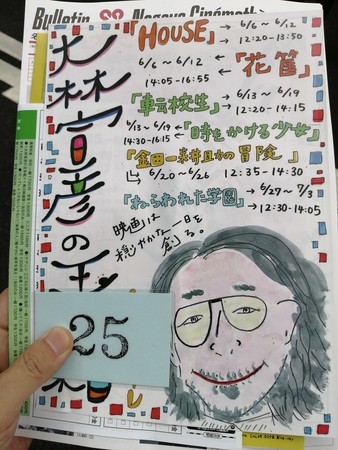 Bulletin
Nagoya Cinémath
大林宣彦の
「HOUSE」→6/6～6/12
12:20-13:50
6/6～6/12←「花筐」
14:05-16:55
「転校生」→6/13～6/19
12:20-14:15
6/13～6/19←「時をかける少女」
14:30-16:15
「金田一耕助の冒険」
6/20～6/26 12:35-14:30
「ねらわれた学園」→6/27～7/3
→12:30-14:05
映画は
穏やかな一日を
創る。
25